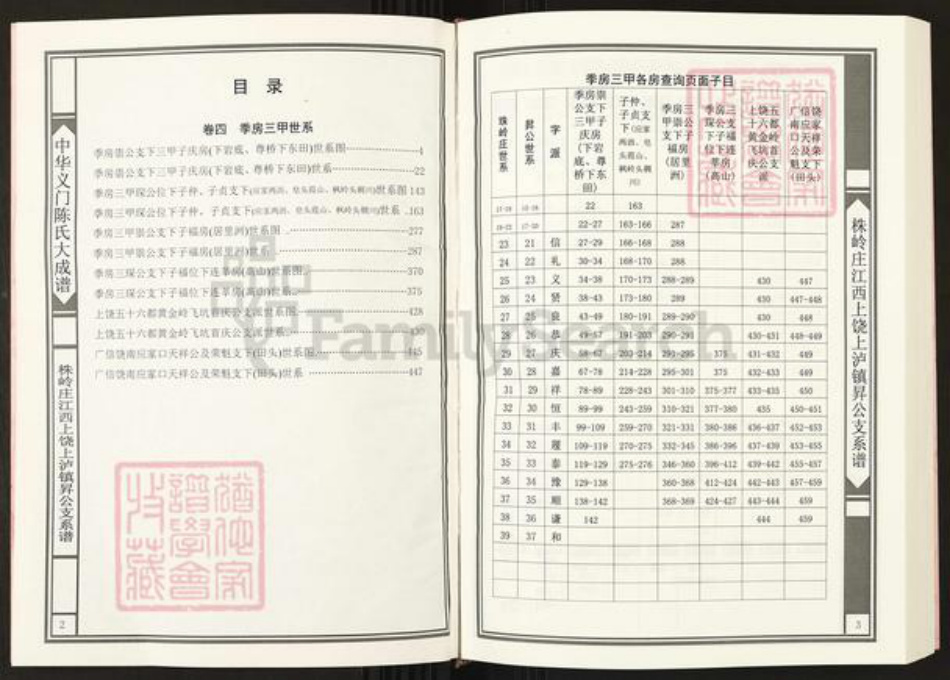 中华义门陈氏大成谱
株岭庄江西上饶上泸镇昇公支系谱
2
目 录
卷四 季房三甲世系
季房崇公支下三甲子庆房(下岩底、尊桥下东田)世系图 4
季房崇公支下三甲子庆房(下岩底、尊桥下东田)世系 22
季房三甲琛公位下子仲、子贞支下 世系图 143
季房三甲琛公位下子仲、子贞支下 世系 163
季房三甲崇公支下子福房(居里洲)世系图 277
季房三甲崇公支下子福房(居里洲)世系 287
季房三琛公支下子福位下连莘房(高山)世系图 370
季房三琛公支下子福位下连莘房(高山)世系 375
上饶五十六都黄金岭飞坑首庆公支派世系图 428
上饶五十六都黄金岭飞坑首庆公支派世系 430
广信饶南应家口天祥公及荣魁支下(田头)世系图 445
广信饶南应家口天祥公及荣魁支下(田头)世系 447
季房三甲各房查询页面子目
株岭庄世系 昇公世系 字派 季房崇公支下三甲子庆房(下岩底、尊桥下东田) 子仲、子贞支下 季房三甲崇公支下子福房(居里洲) 季房三琛公支下子福位下连莘房(高山) 上饶五十六都黄金岭飞坑首庆公支派 广信饶南应家口天祥公及荣魁支下(田头)
22 163
22-27 163-166 287
23 21 信 27-29 166-168 288
24 22 礼 30-34 168-170 288
25 23 义 34-38 170-173 288-289 430 447
26 24 贤 38-43 173-180 289 430 447-448
27 25 良 43-49 180-191 289-290 430 448
28 26 恭 49-57 191-203 290-291 430-431 448-449
29 27 庆 58-67 203-214 291-295 375 431-432 449
30 28 嘉 67-78 214-228 295-301 375 432-433 449
31 29 祥 78-89 228-243 301-310 375-377 433-435 450
32 30 恒 89-99 243-259 310-321 377-380 435 450-451
33 31 丰 99-109 259-270 321-331 380-386 436-437 452-453
34 32 履 109-119 270-275 332-345 386-396 437-439 453-455
35 33 泰 119-129 275-276 346-360 396-412 439-442 455-457
36 34 豫 129-138 360-368 412-424 442-443 457-459
37 35 顺 138-142 368-369 424-427 443-444 459
38 36 谦 142 444 459
39 37 和
株岭庄江西上饶上泸镇昇公支系谱
3
FamilySearch